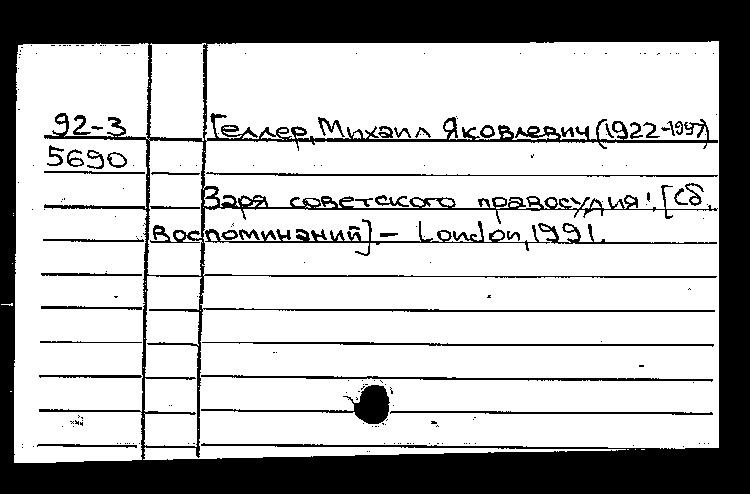 92-3 Геллер, Михаил Яковлевич (1922-1997)
5690
Заря советского правосудия!. [Сб.
воспоминаний]. - London, 1991.